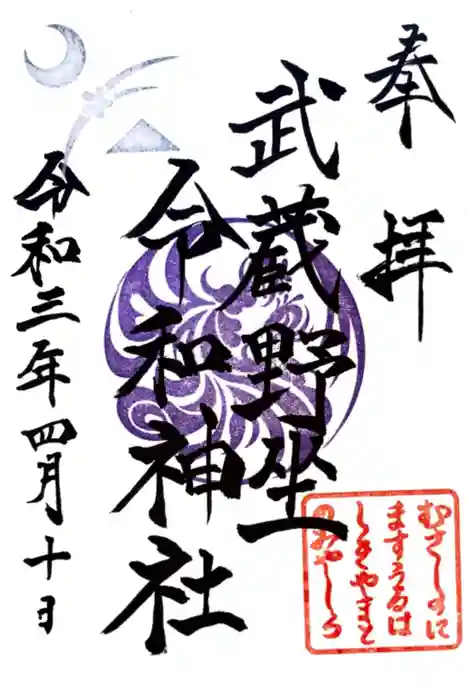 奉拝
武蔵野坐
令和神社
令和三年四月十日
むさしのに
ますうるは
しきやまと
のみやしろ